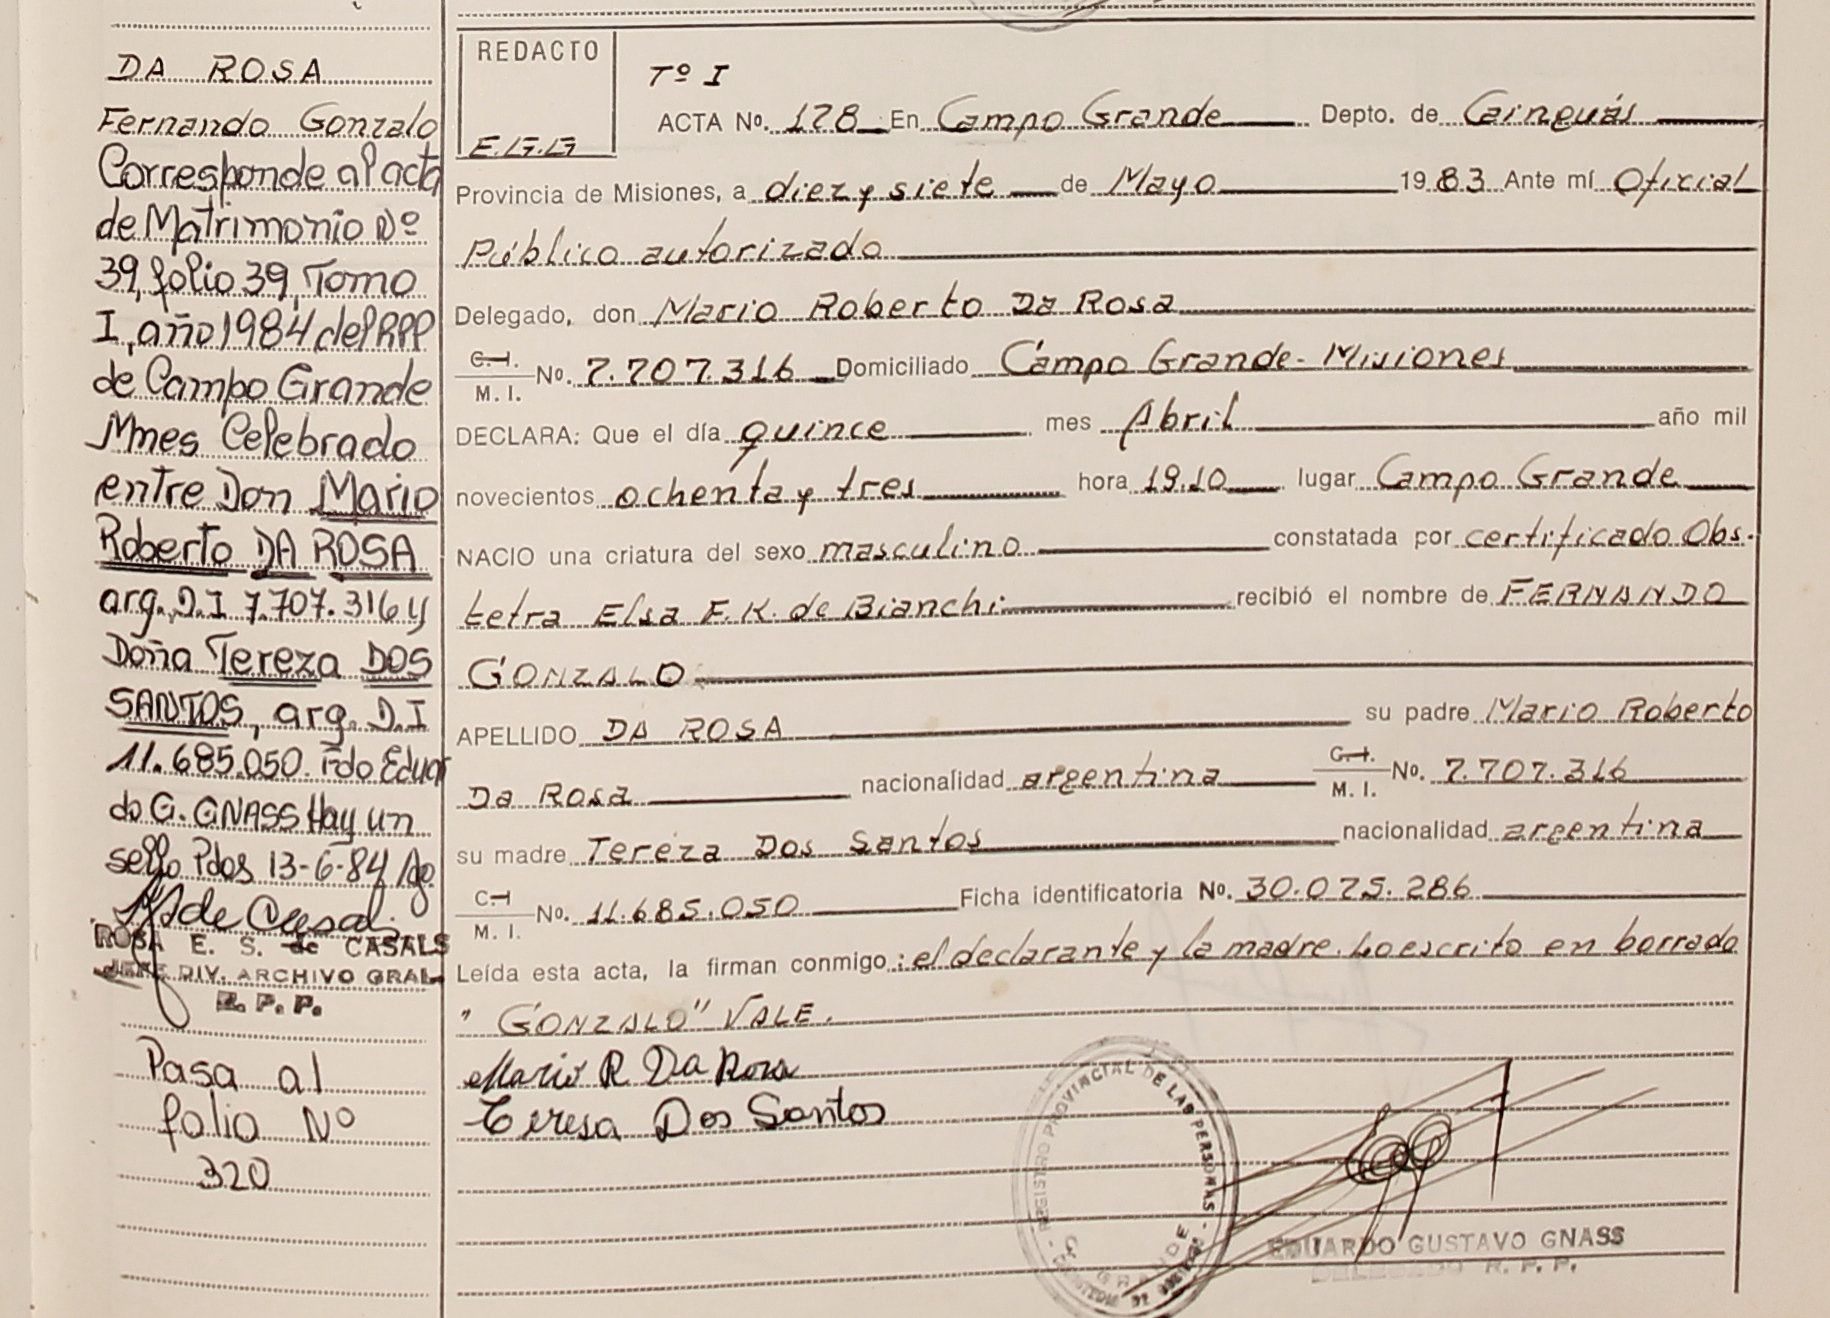 DA ROSA
Fernando Gonzalo
Corresponde al acta
de Matrimonio Nº
39, folio 39, Tomo
I, año 1984 del RPP
de Campo Grande
Mnes Celebrado
entre Don Mario
Roberto DA ROSA
arg. D.I 7.707.316 y
Doña Tereza DOS
SANTOS, arg. D.I
11.685.050. Fdo Eduar
do G. GNASS Hay un
sello Pdos 13-6-84
ROSA E. S. de CASALS
JEFE DIV. ARCHIVO GRAL
R. P. P.
Pasa al
folio Nº
320
REDACTO
Tº I
ACTA No. 128 En Campo Grande Depto. de Cainguás
Provincia de Misiones, a diez y siete de Mayo 1983 Ante mí Oficial
Público autorizado
Delegado, don Mario Roberto Da Rosa
C.I.
M. I. No. 7.707.316 Domiciliado Campo Grande - Misiones
DECLARA: Que el día quince mes Abril año mil
novecientos ochenta y tres hora 19.10 lugar Campo Grande
NACIO una criatura del sexo masculino constatada por certificado Obs-
tetra Elsa F. K. de Bianchi recibió el nombre de FERNANDO
GONZALO
APELLIDO DA ROSA su padre Mario Roberto
Da Rosa nacionalidad argentina C.I. M. I. No. 7.707.316
su madre Tereza Dos Santos nacionalidad argentina
C.I M. I. No. 11.685.050 Ficha identificatoria No. 30.075.286
Leída esta acta, la firman conmigo: el declarante y la madre. Lo escrito en borrado
"GONZALO" VALE.
Mario R Da Rosa
Teresa Dos Santos
REGISTRO PROVINCIAL DE LAS PERSONAS
EDUARDO GUSTAVO GNASS
DELEGADO R. P. P.